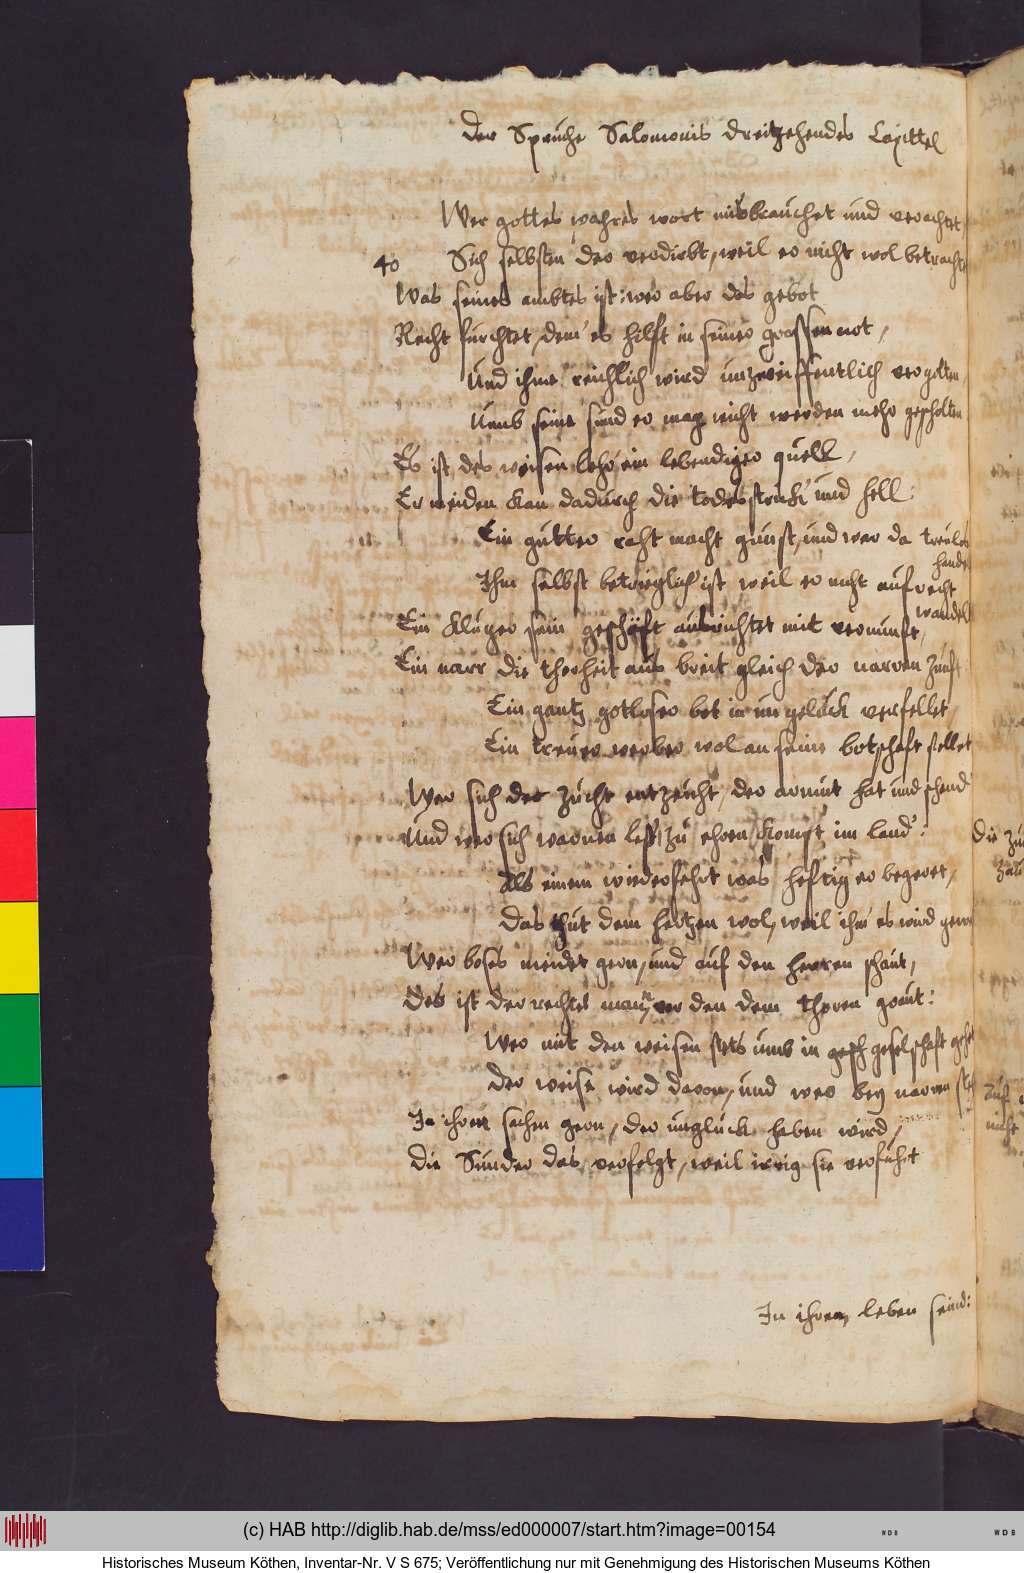 Der Spruche Salomonis dreitzehendes Capittel
Wer gottes wahres wort misbrauchet und verachtet,
40 Sich selbsten der verdirbt, weil er nicht wol betrachte
Was seines ambtes ist: wer aber das gebot
Recht furchtet, dem es hilft in seiner grossen not,
Und ihme reichlich wird unzweiffentlich vergolten,
Umb seine sund er mag nicht werden mehr gescholten
Es ist des weisen lehr ein lebendiger quell,
Er meiden kan dadurch die todesstrick und hell:
Ein gutter raht macht gunst, und wer da treulos
handel
Ihm selbst betrieglich ist weil er nicht aufrecht
wandelt
Ein kluger sein geschäft ausrichtet mit vernunft,
Ein narr die thorheit aus breit gleich der narren zunft:
Ein gantz gotloser bot in ungeluck verfellet,
Ein treuer werber wol an seine botschaft stellet
Wer sich der zucht entzeucht, der armut hat und schand
Und wer sich warnen lest, zu ehren kompt im land:
Als einem wiederfehrt was heftig er begeret,
Das thut dem hertzen wol, weil ihm es wird gewe
Wer boses meidet gern, und auf den herren schaut,
Des ist der rechte man, vor den dem thoren graut:
Wer mit den weisen stets umb in gesch geselschaft gehet
Der weise wird davon, und wer bey narren ste
In ihren sachen gern, der ungluck haben wird,
Die Sunder das verfolgt, weil irrig sie verfuhrt
In ihrem leben seind:
Die zu
Auf
nicht
(c) HAB http://diglib.hab.de/mss/ed000007/start.htm?image=00154
WDB
WDB
Historisches Museum Köthen, Inventar-Nr. V S 675; Veröffentlichung nur mit Genehmigung des Historischen Museums Köthen